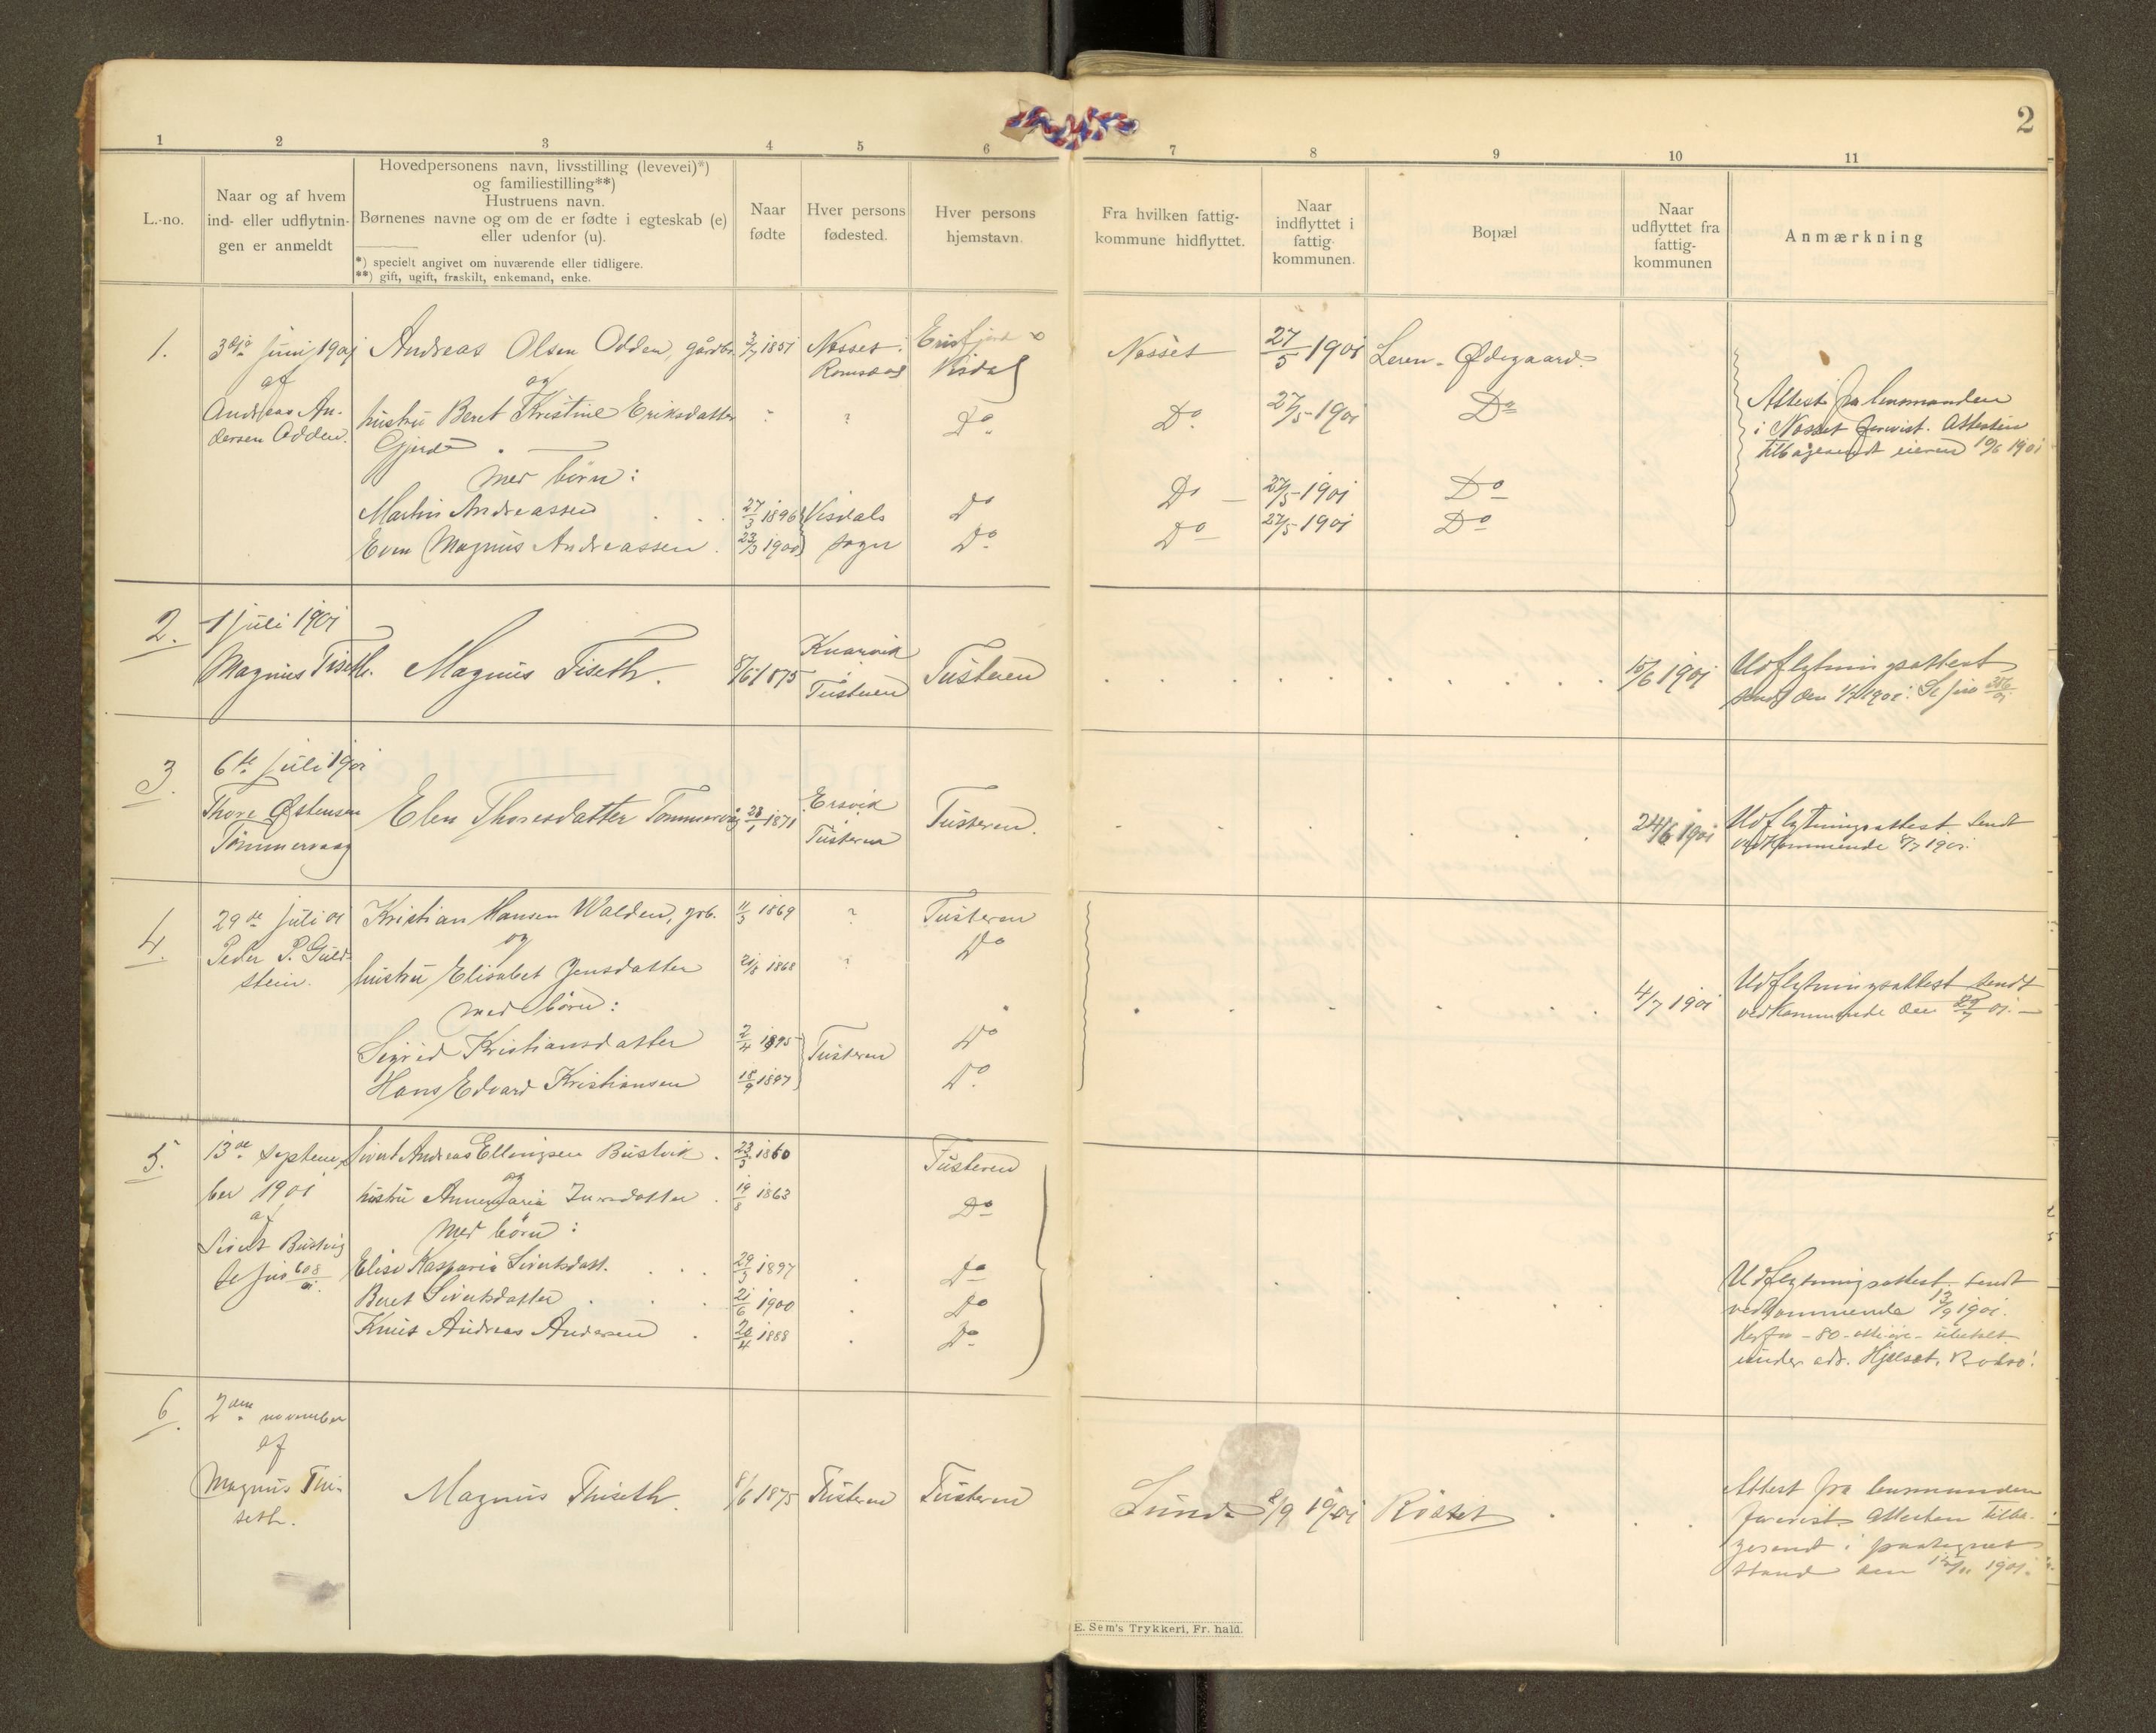 2
1 2 3 4 5 6 7 8 9 10 11
L.-no.
Naar og af hvem
ind- eller udflytnin-
gen er anmeldt
Hovedpersonens navn, livsstilling (levevei)*)
og familiestilling**)
Hustruens navn.
Børnenes navne og om de er fødte i egteskab (e)
eller udenfor (u).
*) specielt angivet om nuværende eller tidligere.
**) gift, ugift, fraskilt, enkemand, enke.
Naar
fødte
Hver persons
fødested.
Hver persons
hjemstavn.
Fra hvilken fattig-
kommune hidflyttet.
Naar
indflyttet i
fattig-
kommunen.
Bopæl
Naar
udflyttet fra
fattig-
kommunen
Anmærkning
1.
3die juni 1901
af
Andreas An-
dersen Odden.
Andreas Olsen Odden, gårdbr.
og
hustru Beret Kristine Eriksdatter
Gjerde
med børn:
Martin Andreassen
Even Magnus Andreassen.
3/7 1851
27/3 1896
23/3 1900
Nesset.
Romsdal
?
Visdals
sogn
Erisfjord &
Visdal
Do
Do
Do
Nesset
Do
Do
Do
27/5 1901
27/5-1901
27/5-1901
27/5-1901
Leren-Ødegaard
Do
Do
Do
Attest fra lensmanden
i Nesset forevist. Attesten
tilbagesendt eieren 10/6 1901
2.
1 juli 1901
Magnus Tiseth.
Magnus Tiseth.
8/6 1875
Knarvik
Tusteren
Tusteren
15/6 1901
Udflytningsattest
sendt den 1/7 1901. Se jno
3.
6te juli 1901
Thore Østensen
Tømmervaag
Elen Thoresdatter Tømmervåg
28/1 1871
Ersvik
Tusteren
Tusteren.
24/6 1901
Udflytningsattest sendt
vedkommende 8/7 1901.
4.
29de juli 01
Peder P. Guld-
stein.
Kristian Hansen Walden, grb.
og
hustru Elisabet Jensdatter
med børn:
Sigrid Kristiansdatter
Hans Edvard Kristiansen
11/3 1869
21/8 1868
2/4 1895
18/9 1897
?
?
Tusteren
Tusteren
Do
Do
Do.
4/7 1901
Udflytningsattest sendt
vedkommende den 29/7 01.
5.
13de septem-
ber 1901
af
Sivert Bustvig
se jno 608/01.
Sivert Andreas Ellingsen Bustvik.
og
hustru Annemaria
med børn:
Elise Kasparia Sivertsdatt.
Beret Sivertsdatter
Knut Andreas Andersen
23/3 1860
19/8 1863
29/3 1897
21/6 1900
20/4 1888
Tusteren
Do
Do
Do
Do
Udflytningsattest sendt
vedkommende 13/9 1901.
Herfor - 80 - otti øre - ubetalt
under adr. Hjelset, Bolsø.
6.
2den november
af
Magnus Thi-
seth.
Magnus Thiseth.
8/6 1875
Tusteren
Tusteren
Sund
8/9 1901
Røsset
Attest fra lensmanden
forevist. Attesten tilba-
gesendt i paategnet
stand den 15/11 1901.
E. Sem's Trykkeri, Fr. hald.